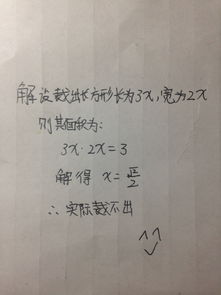 解设裁出长方形长为3x,宽为2x
则其面积为:
3x·2x=3
解得 x=√2/2
∴实际裁不出